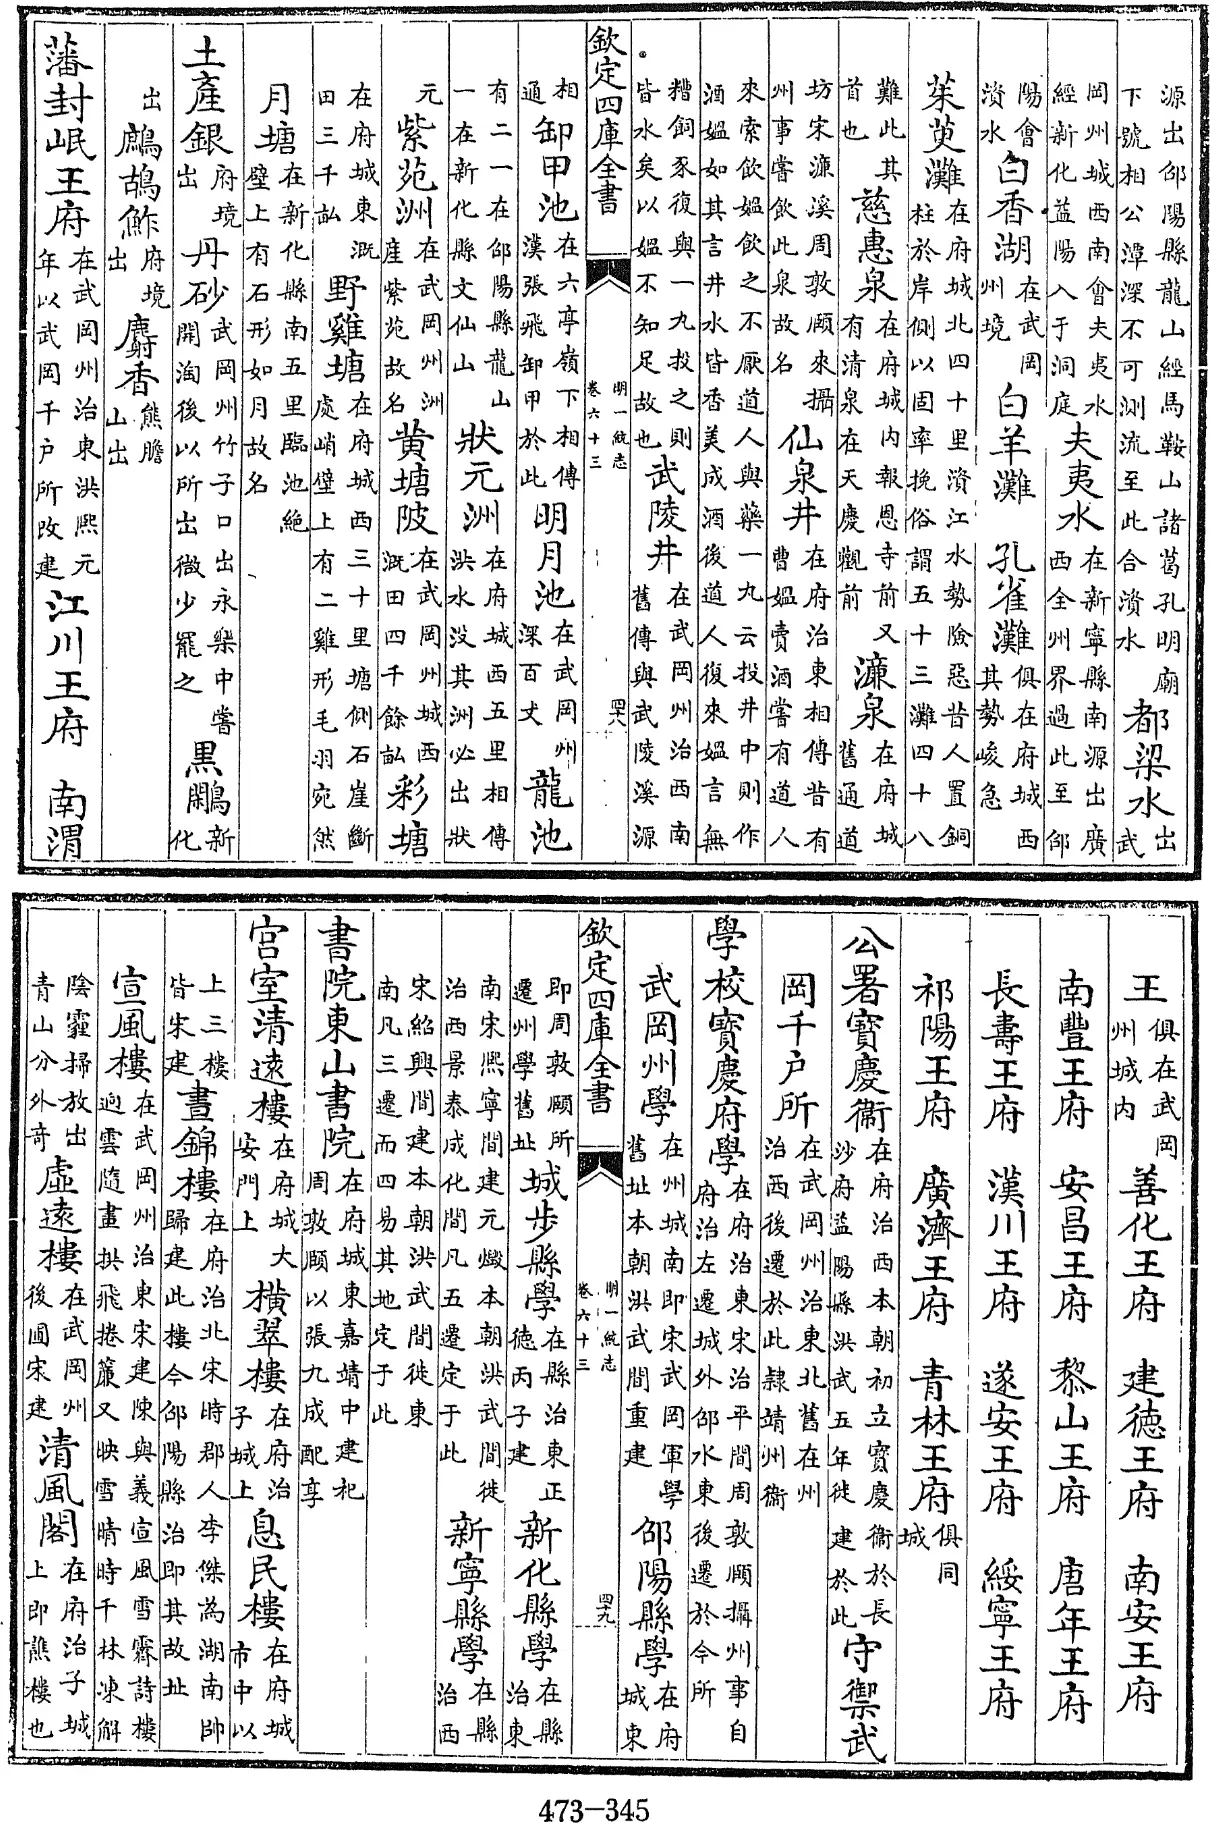 源出邵陽縣龍山經馬鞍山諸葛孔明廟下號相公潭深不可測流至此合濆水都梁水出武
岡州城西南會夫夷水經新化益陽入于洞庭夫夷水在新寧縣南源出廣西全州界過此至邵
陽會濆水白香湖在武岡州境白羊灘 孔雀灘俱在府城西其勢峻急
茱萸灘在府城北四十里資江水勢險惡昔人置銅柱於岸側以固牽挽俗謂五十三灘四十八
難此其首也慈惠泉在府城内報恩寺前又有清泉在天慶觀前濂泉在府城舊通道
坊宋濂溪周敦頤來攝州事嘗飲此泉故名仙泉井在府治東相傳昔有曹媪賣酒嘗有道人
來索飲媪飲之不厭道人與藥一九云投井中則作酒媪如其言井水皆香美成酒後道人復來媪言無
糟飼豕復與一丸投之則皆水矣以媪不知足故也武陵井在武岡州治西南舊傳與武陵溪源
欽定四庫全書 明一統志 卷六十三 四八
相通卸甲池在六亭嶺下相傳漢張飛卸甲於此明月池在武岡州深百丈龍池
有二一在邵陽縣龍山一在新化縣文仙山狀元洲在府城西五里相傳洪水没其洲必出狀
元紫苑洲在武岡州洲産紫苑故名黄塘陂在武岡州城西溉田四千餘畝彩塘
在府城東溉田三千畝野雞塘在府城西三十里塘側石崖斷處峭壁上有二雞形毛羽宛然
月塘在新化縣南五里臨池絶壁上有石形如月故名
土産銀府境出丹砂武岡州竹子口出永樂中嘗開淘後以所出微少罷之黑鷴新化
出鷓鴣鮓府境出麝香熊膽山出
藩封岷王府在武岡州治東洪熙元年以武岡千户所改建江川王府 南渭
王俱在武岡州城内善化王府 建德王府 南安王府
南豐王府 安昌王府 黎山王府 唐年王府
長壽王府 漢川王府 遂安王府 綏寧王府
祁陽王府 廣濟王府 青林王府俱同城
公署寶慶衞在府治西本朝初立寶慶衞於長沙府益陽縣洪武五年徙建於此守禦武
岡千户所在武岡州治東北舊在州治西後遷於此隷靖州衞
學校寶慶府學在府治東宋治平間周敦頤攝州事自府治左遷城外邵水東後遷於今所
武岡州學在州城南即宋武岡軍學舊址本朝洪武間重建邵陽縣學在府城東
欽定四庫全書 明一統志 卷六十三 四九
即周敦頤所遷州學舊址城步縣學在縣治東正德丙子建新化縣學在縣治東
南宋熙寧間建元燬本朝洪武間徙治西景泰成化間凡五遷定于此新寧縣學在縣治西
宋紹興間建本朝洪武間徙東南凡三遷而四易其地定于此
書院東山書院在府城東嘉靖中建祀周敦頤以張九成配享
宫室清遠樓在府城大安門上横翠樓在府治子城上息民樓在府城市中以
上三樓皆宋建晝錦樓在府治北宋時郡人李傑為湖南帥歸建此樓今邵陽縣治即其故址
宣風樓在武岡州治東宋建陳與義宣風雪霽詩樓迥雲隨畫拱飛捲簾又映雪晴時千林凍解
陰霾掃放出青山分外奇虚遠樓在武岡州後圃宋建清風閣在府治子城上即譙樓也
473-345